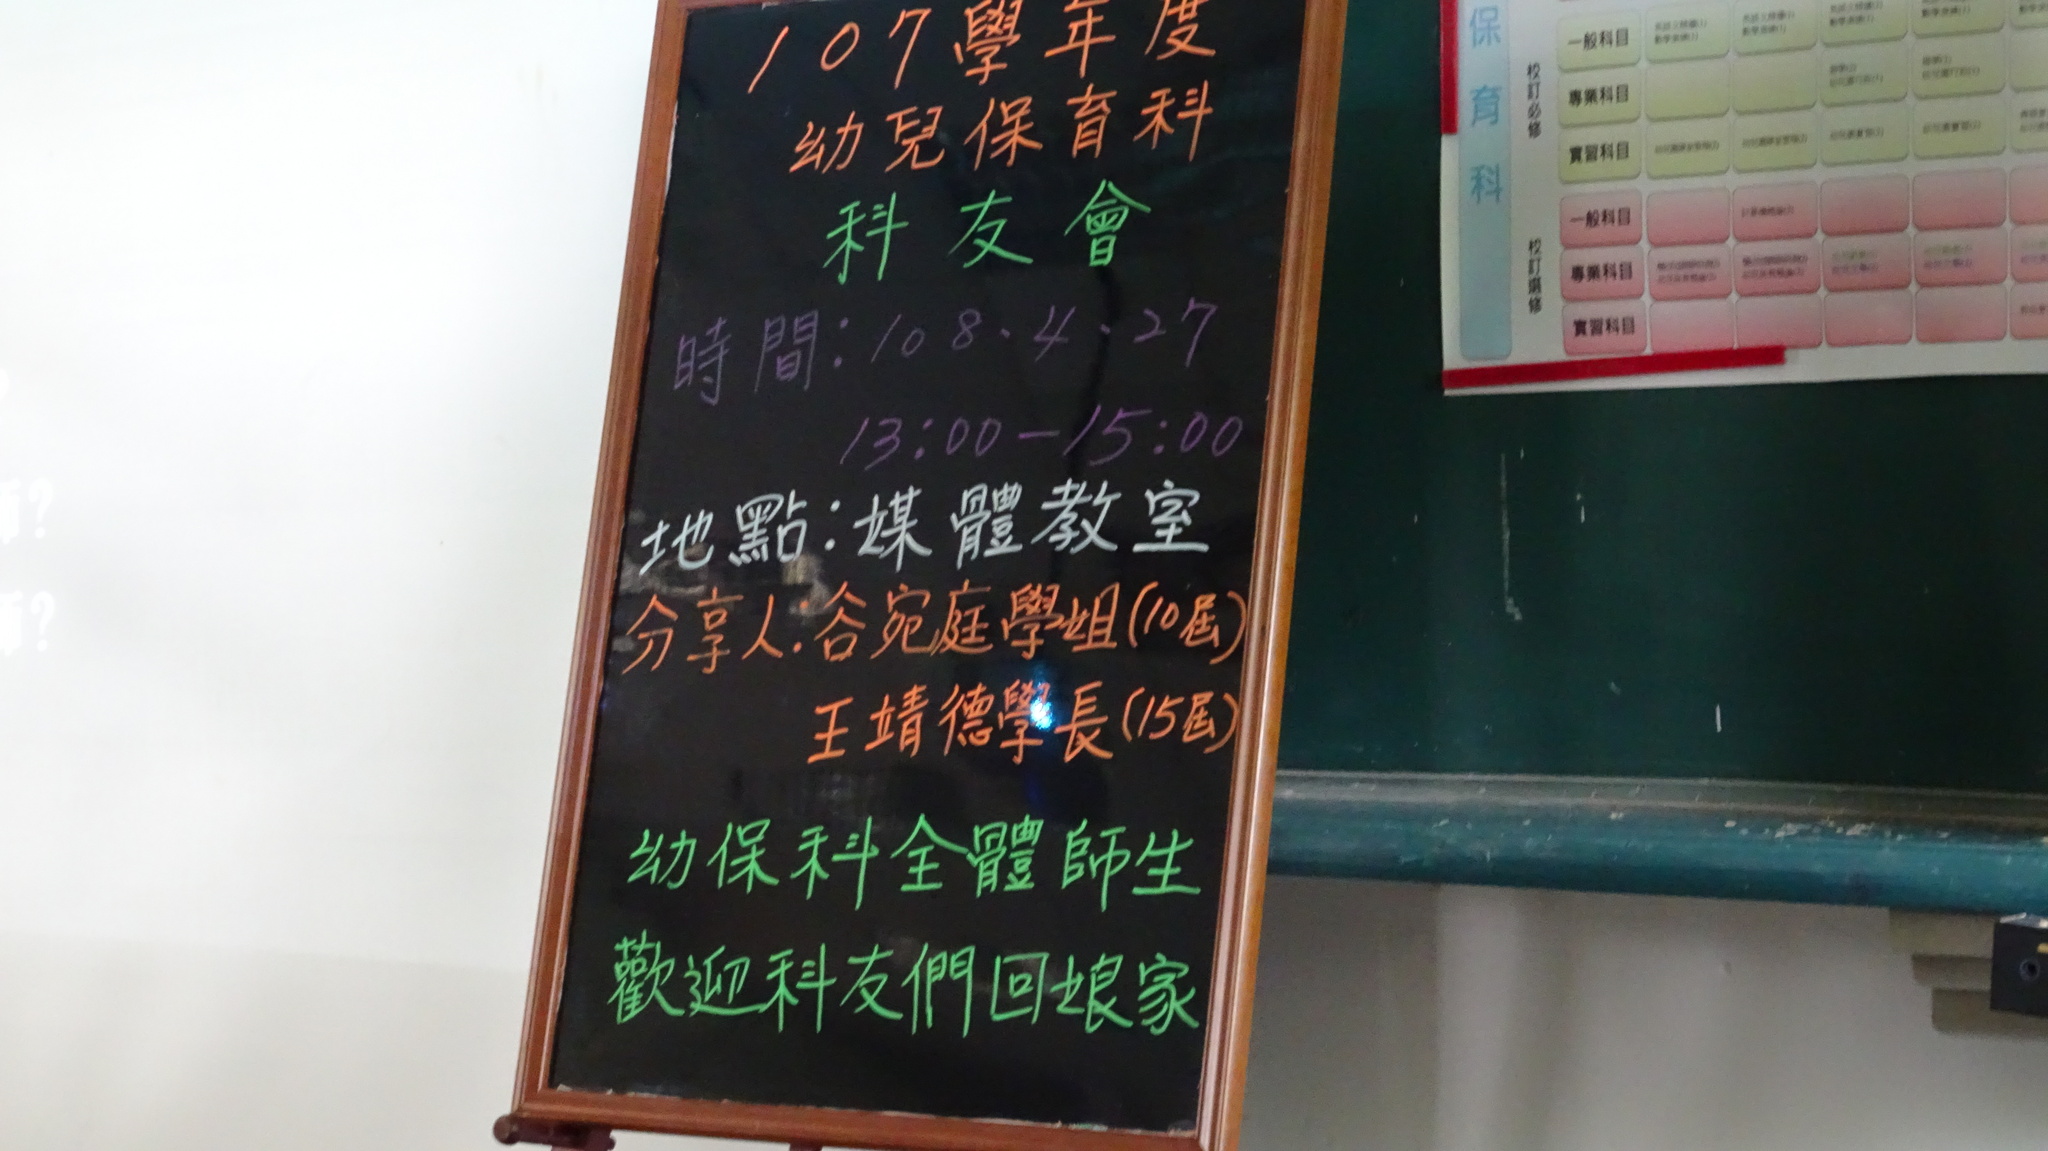 107學年度
幼兒保育科
科友會
時間:108.4.27
13:00-15:00
地點:媒體教室
分享人:谷宛庭學姐(10屆)
王靖德學長(15屆)
幼保科全體師生
歡迎科友們回娘家
保育科
校訂必修
一般科目
專業科目
實習科目
校訂選修
一般科目
專業科目
實習科目